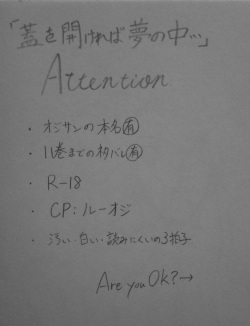 「蓋を開ければ夢の中…」
Attention
・オジサンの本名㊒
・11巻までのネタバレ㊒
・R-18
・CP:ルーオジ
・汚い・白い・読みにくいの3拍子
Are you Ok?→